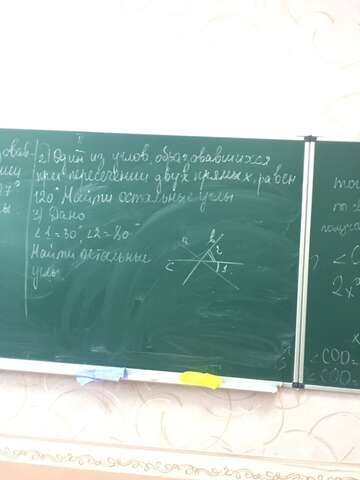 2) Один из углов образовавшихся
при пересечении двух прямых, равен
120° Найти остальные углы
3) Дано
∠1=30°, ∠2=80°
Найти остальные
углы
a
b
c
2
1
7°
2x
∠COD=
∠COD=